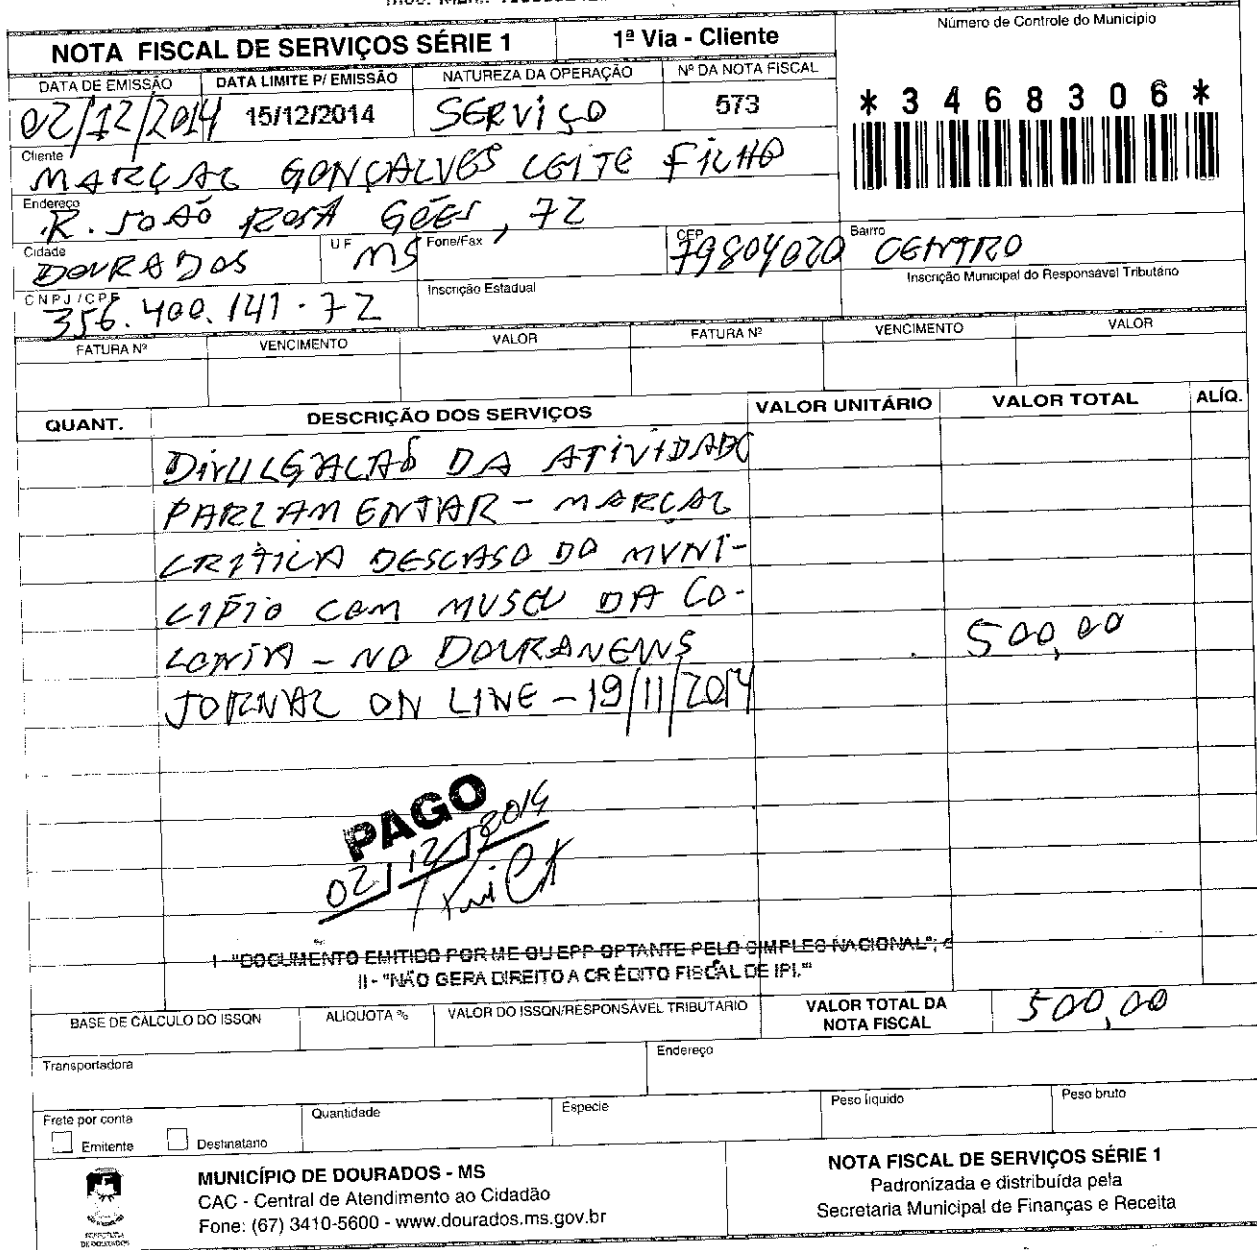 NOTA FISCAL DE SERVIÇOS SÉRIE 1
1ª Via - Cliente
Número de Controle do Município
DATA DE EMISSÃO
DATA LIMITE P/ EMISSÃO
NATUREZA DA OPERAÇÃO
Nº DA NOTA FISCAL
02/12/2014
15/12/2014
SERVIÇO
573
* 3 4 6 8 3 0 6 *
Cliente
MARÇAL GONÇALVES LEITE FILHO
Endereço
R. JOÃO ROSA GÓES, 72
Cidade
DOURADOS
UF
MS
Fone/Fax
CEP
79804020
Bairro
CENTRO
CNPJ / CPF
356.400.141-72
Inscrição Estadual
Inscrição Municipal do Responsável Tributário
FATURA Nº
VENCIMENTO
VALOR
FATURA Nº
VENCIMENTO
VALOR
QUANT.
DESCRIÇÃO DOS SERVIÇOS
VALOR UNITÁRIO
VALOR TOTAL
ALÍQ.
DIVULGAÇÃO DA ATIVIDADE
PARLAMENTAR - MARÇAL
CRITICA DESCASO DO MUNI-
CIPIO COM MUSEU DA CO-
LONIA - NO DOURANEWS
500,00
JORNAL ON LINE - 19/11/2014
PAGO
02/12/2014
I - "DOCUMENTO EMITIDO POR ME OU EPP OPTANTE PELO SIMPLES NACIONAL"; e
II - "NÃO GERA DIREITO A CRÉDITO FISCAL DE IPI."
BASE DE CÁLCULO DO ISSQN
ALIQUOTA %
VALOR DO ISSQN/RESPONSÁVEL TRIBUTÁRIO
VALOR TOTAL DA
NOTA FISCAL
500,00
Transportadora
Endereço
Frete por conta
Emitente
Destinatário
Quantidade
Especie
Peso líquido
Peso bruto
MUNICÍPIO DE DOURADOS - MS
CAC - Central de Atendimento ao Cidadão
Fone: (67) 3410-5600 - www.dourados.ms.gov.br
PREFEITURA
DE DOURADOS
NOTA FISCAL DE SERVIÇOS SÉRIE 1
Padronizada e distribuída pela
Secretaria Municipal de Finanças e Receita